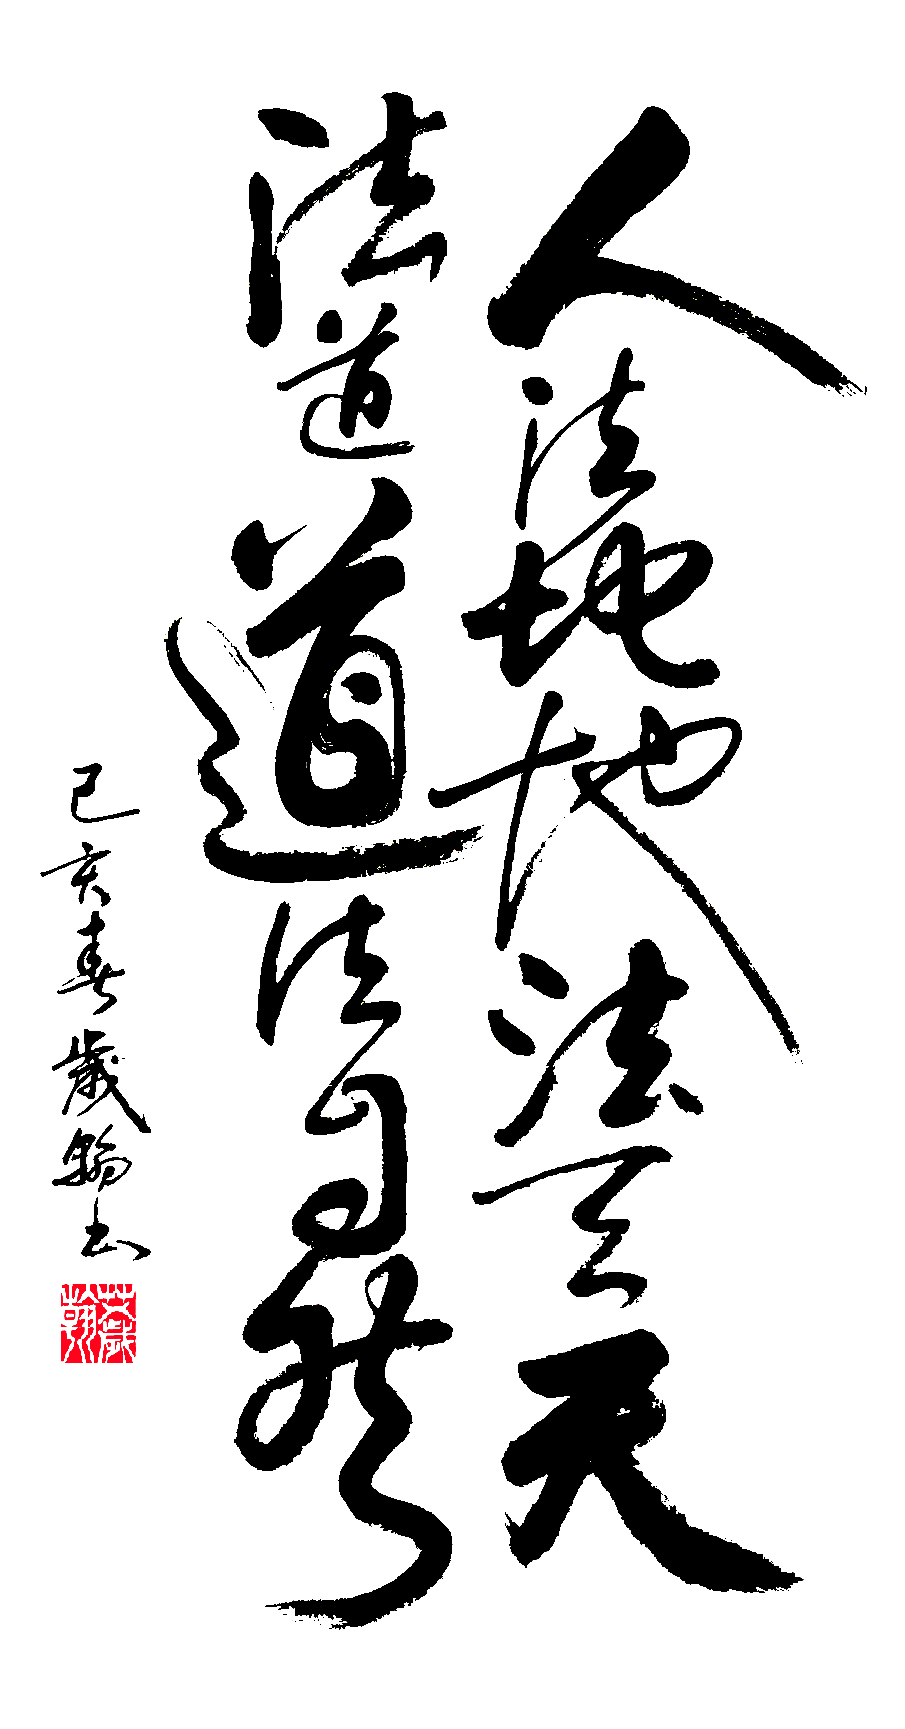 人法地地法天天
法道道法自然
己亥春歲翰书
歲翰